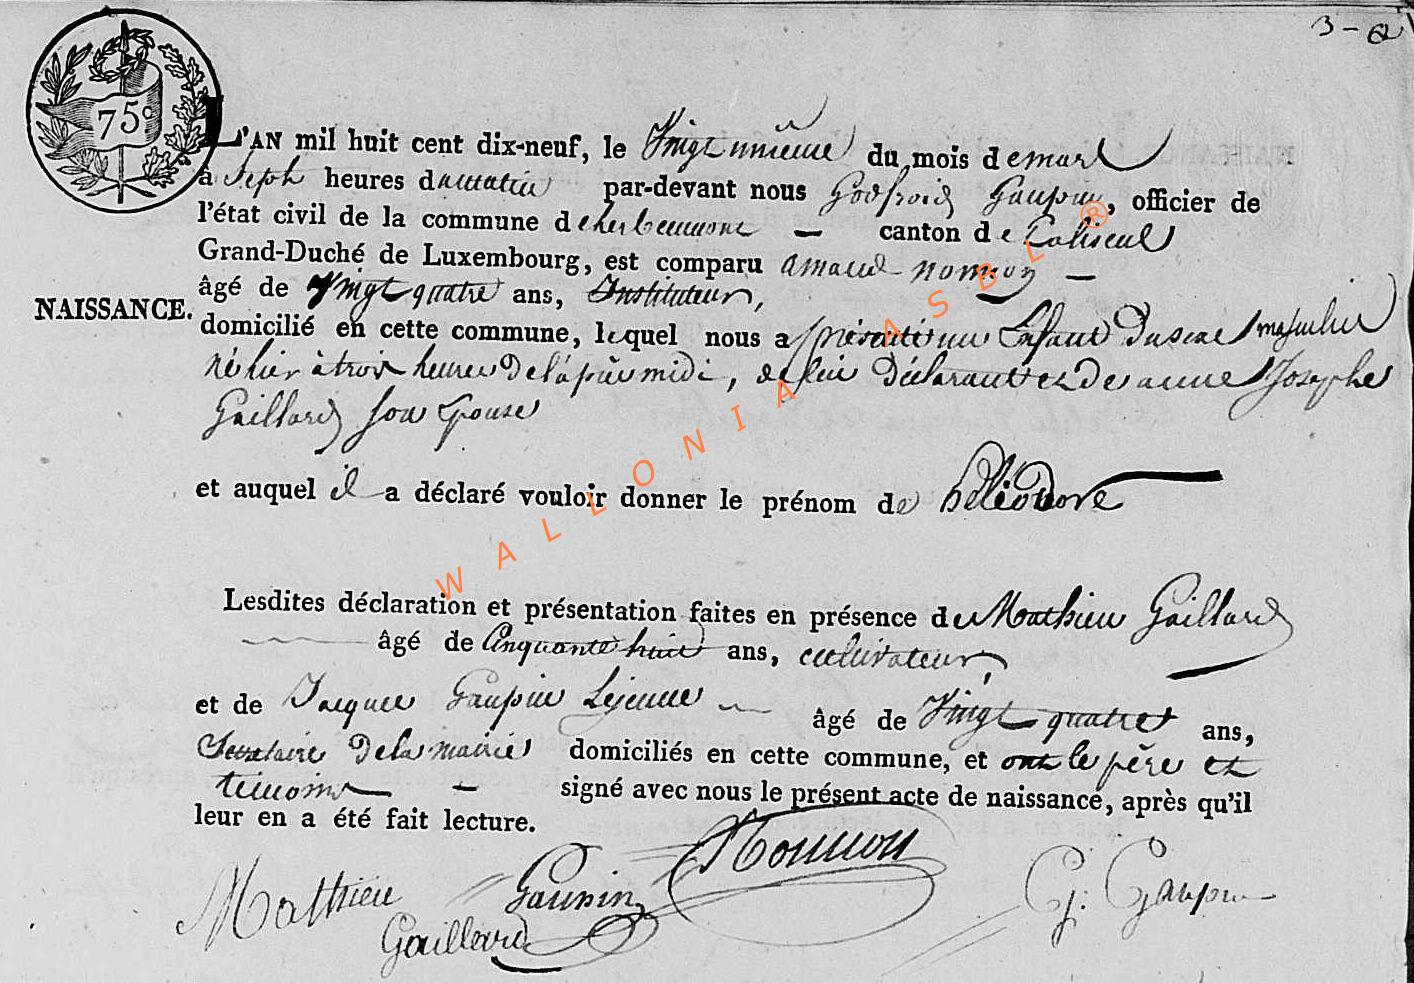 3 - a
75c
L'AN mil huit cent dix-neuf, le Vingt unieme du mois de mars
à Sept heures du matin par-devant nous Godfroid Gaupin, officier de
l'état civil de la commune de herbeumont — canton de Paliseul
Grand-Duché de Luxembourg, est comparu amand nonnon —
âgé de Vingt quatre ans, Instituteur,
NAISSANCE.
domicilié en cette commune, lequel nous a présenté un Enfant du sexe masculin
né hier à trois heures de l'après midi, de lui déclarant et de anne Josephe
Gaillard son Epouse
et auquel il a déclaré vouloir donner le prénom de héliodore
Lesdites déclaration et présentation faites en présence de Mathieu Gaillard
âgé de Cinquante huit ans, cultivateur,
et de Jacques Gaupin Lejeune — âgé de Vingt quatre ans,
Secretaire de la mairie domiciliés en cette commune, et ont le père et
témoins — signé avec nous le présent acte de naissance, après qu'il
leur en a été fait lecture.
Mathieu Gaillard
Gaupin
Nonnon
G. Gaupin
WALLONIA ASBL ®